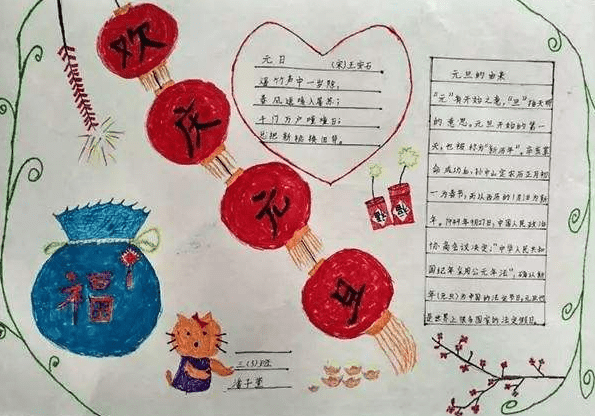 欢
庆
元
旦
元日 (宋)王安石
爆竹声中一岁除,
春风送暖入屠苏;
千门万户曈曈日;
总把新桃换旧符。
元旦的由来
“元”有开始之意,“旦”指天明
的意思。元旦开始的第一
天,也被称为“新历年”。辛亥革
命成功后,孙中山定农历正月初
一为春节,而以西历的1月1日为新
年。1949年9月27日,中国人民政治
协商会议决定:“中华人民共和
国纪年采用公元年法”,确认新
年(元旦)为中国的法定节日元旦也
是世界上很多国家的法定假日。
福
三(3)班